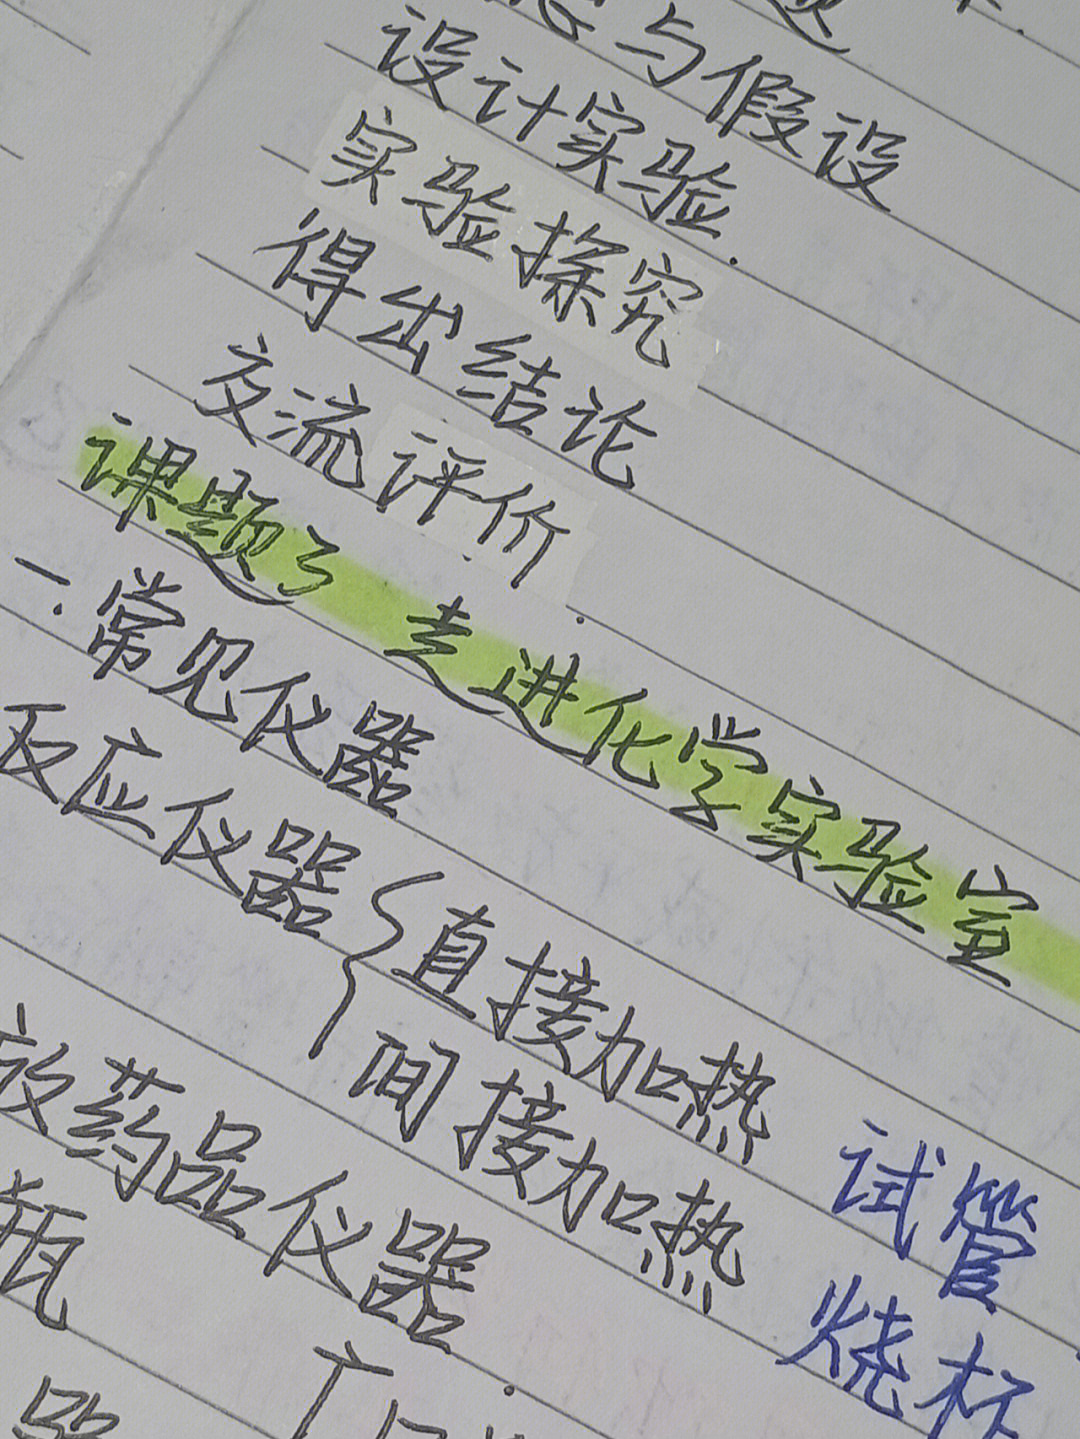 与假设
设计实验
实验探究
得出结论
交流评价
课题3 走进化学实验室
一.常见仪器
反应仪器{直接加热 试管
间接加热 烧杯
放药品仪器
瓶 广口
器